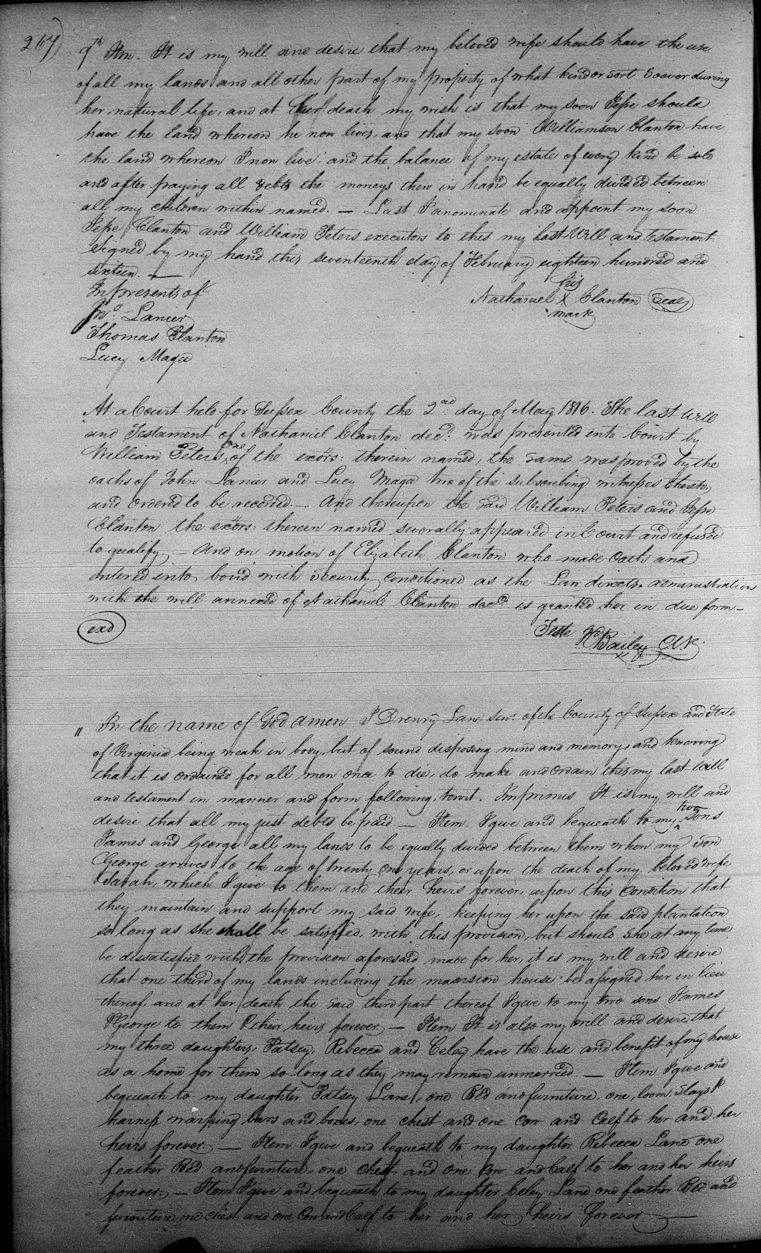 267)
9th Itm. It is my will and desire that my beloved wife should have the use
of all my lands and all other part of my property of what kind or sort soever during
her natural life, and at her death my wish is that my soon Jesse should
have the land whereon he non lives, and that my soon Williamson Clanton have
the land whereon I non live: and the balance of my estate of every kind be sold
and after paying all debts the moneys then in hand be equally divided between
all my children within named. — Last I anominate and appoint my soon
Jesse Clanton and William Peters executors to this my last Will and testament.
Signed by my hand this seventeenth day of February eighteen hundred and
sixteen. —
In presents of
his
Nathaniel X Clanton Seal
mark
Jno. Lanier
Thomas Clanton
Lucy Magee
At a Court held for Sussex County the 2nd day of May 1816. The last Will
and Testament of Nathaniel Clanton decd. was presented into Court by
William Peters one of the exors: therein named, the same was proved by the
oaths of John Lanier and Lucy Magee two of the subscribing witnesses thereto,
and ordered to be recorded. — And thereupon the said William Peters and Jesse
Clanton the exors: therein named severally appeared in Court and refused
to qualify — And on motion of Elizabeth Clanton who made oath and
entered into bond with security conditioned as the Law directs administration
with the will annexed of Nathaniel Clanton decd. is granted her in due form —
exd
Teste Bailey Clk.
" In the name of God amen I Drenry Lane Senr. of the County of Sussex and State
of Virginia being weak in body, but of sound disposing mind and memory, and knowing
that it is ordained for all men once to die, do make and ordain this my last Will
and testament in manner and form following, towit. Imprimis It is my will and
desire that all my just debts be paid — Item I give and bequeath to my two sons
James and George all my lands to be equally divided between them when my son
George arrives to the age of twenty one years, or upon the death of my beloved wife
Sarah, which I give to them and their heirs forever, upon this condition that
they maintain and support my said wife, keeping her upon the said plantation
so long as she shall be satisfied with this provision, but should she at any time
be dissatisfied with the provision aforesaid made for her, it is my will and desire
that one third of my lands including the mansion house be assigned her in lieu
thereof and at her death the said third part thereof I give to my two sons James
& George to them & their heirs forever — Item It is also my will and desire that
my three daughters, Patsey, Rebecca and Celey have the use and benefit of my house
as a home for them so long as they may remain unmarried. — Item I give and
bequeath to my daughter Patsey Lane, one Bed and furniture, one loom, slays &
harness warping bars and boxes, one chest and one Cow and Calf to her and her
heirs forever — Item I give and bequeath to my daughter Rebecca Lane one
feather Bed and furniture, one chest, and one Cow and Calf to her and her heirs
forever — Item I give and bequeath to my daughter Celey Lane one feather Bed and
furniture, one chest and one Cow and Calf to her and her heirs forever —